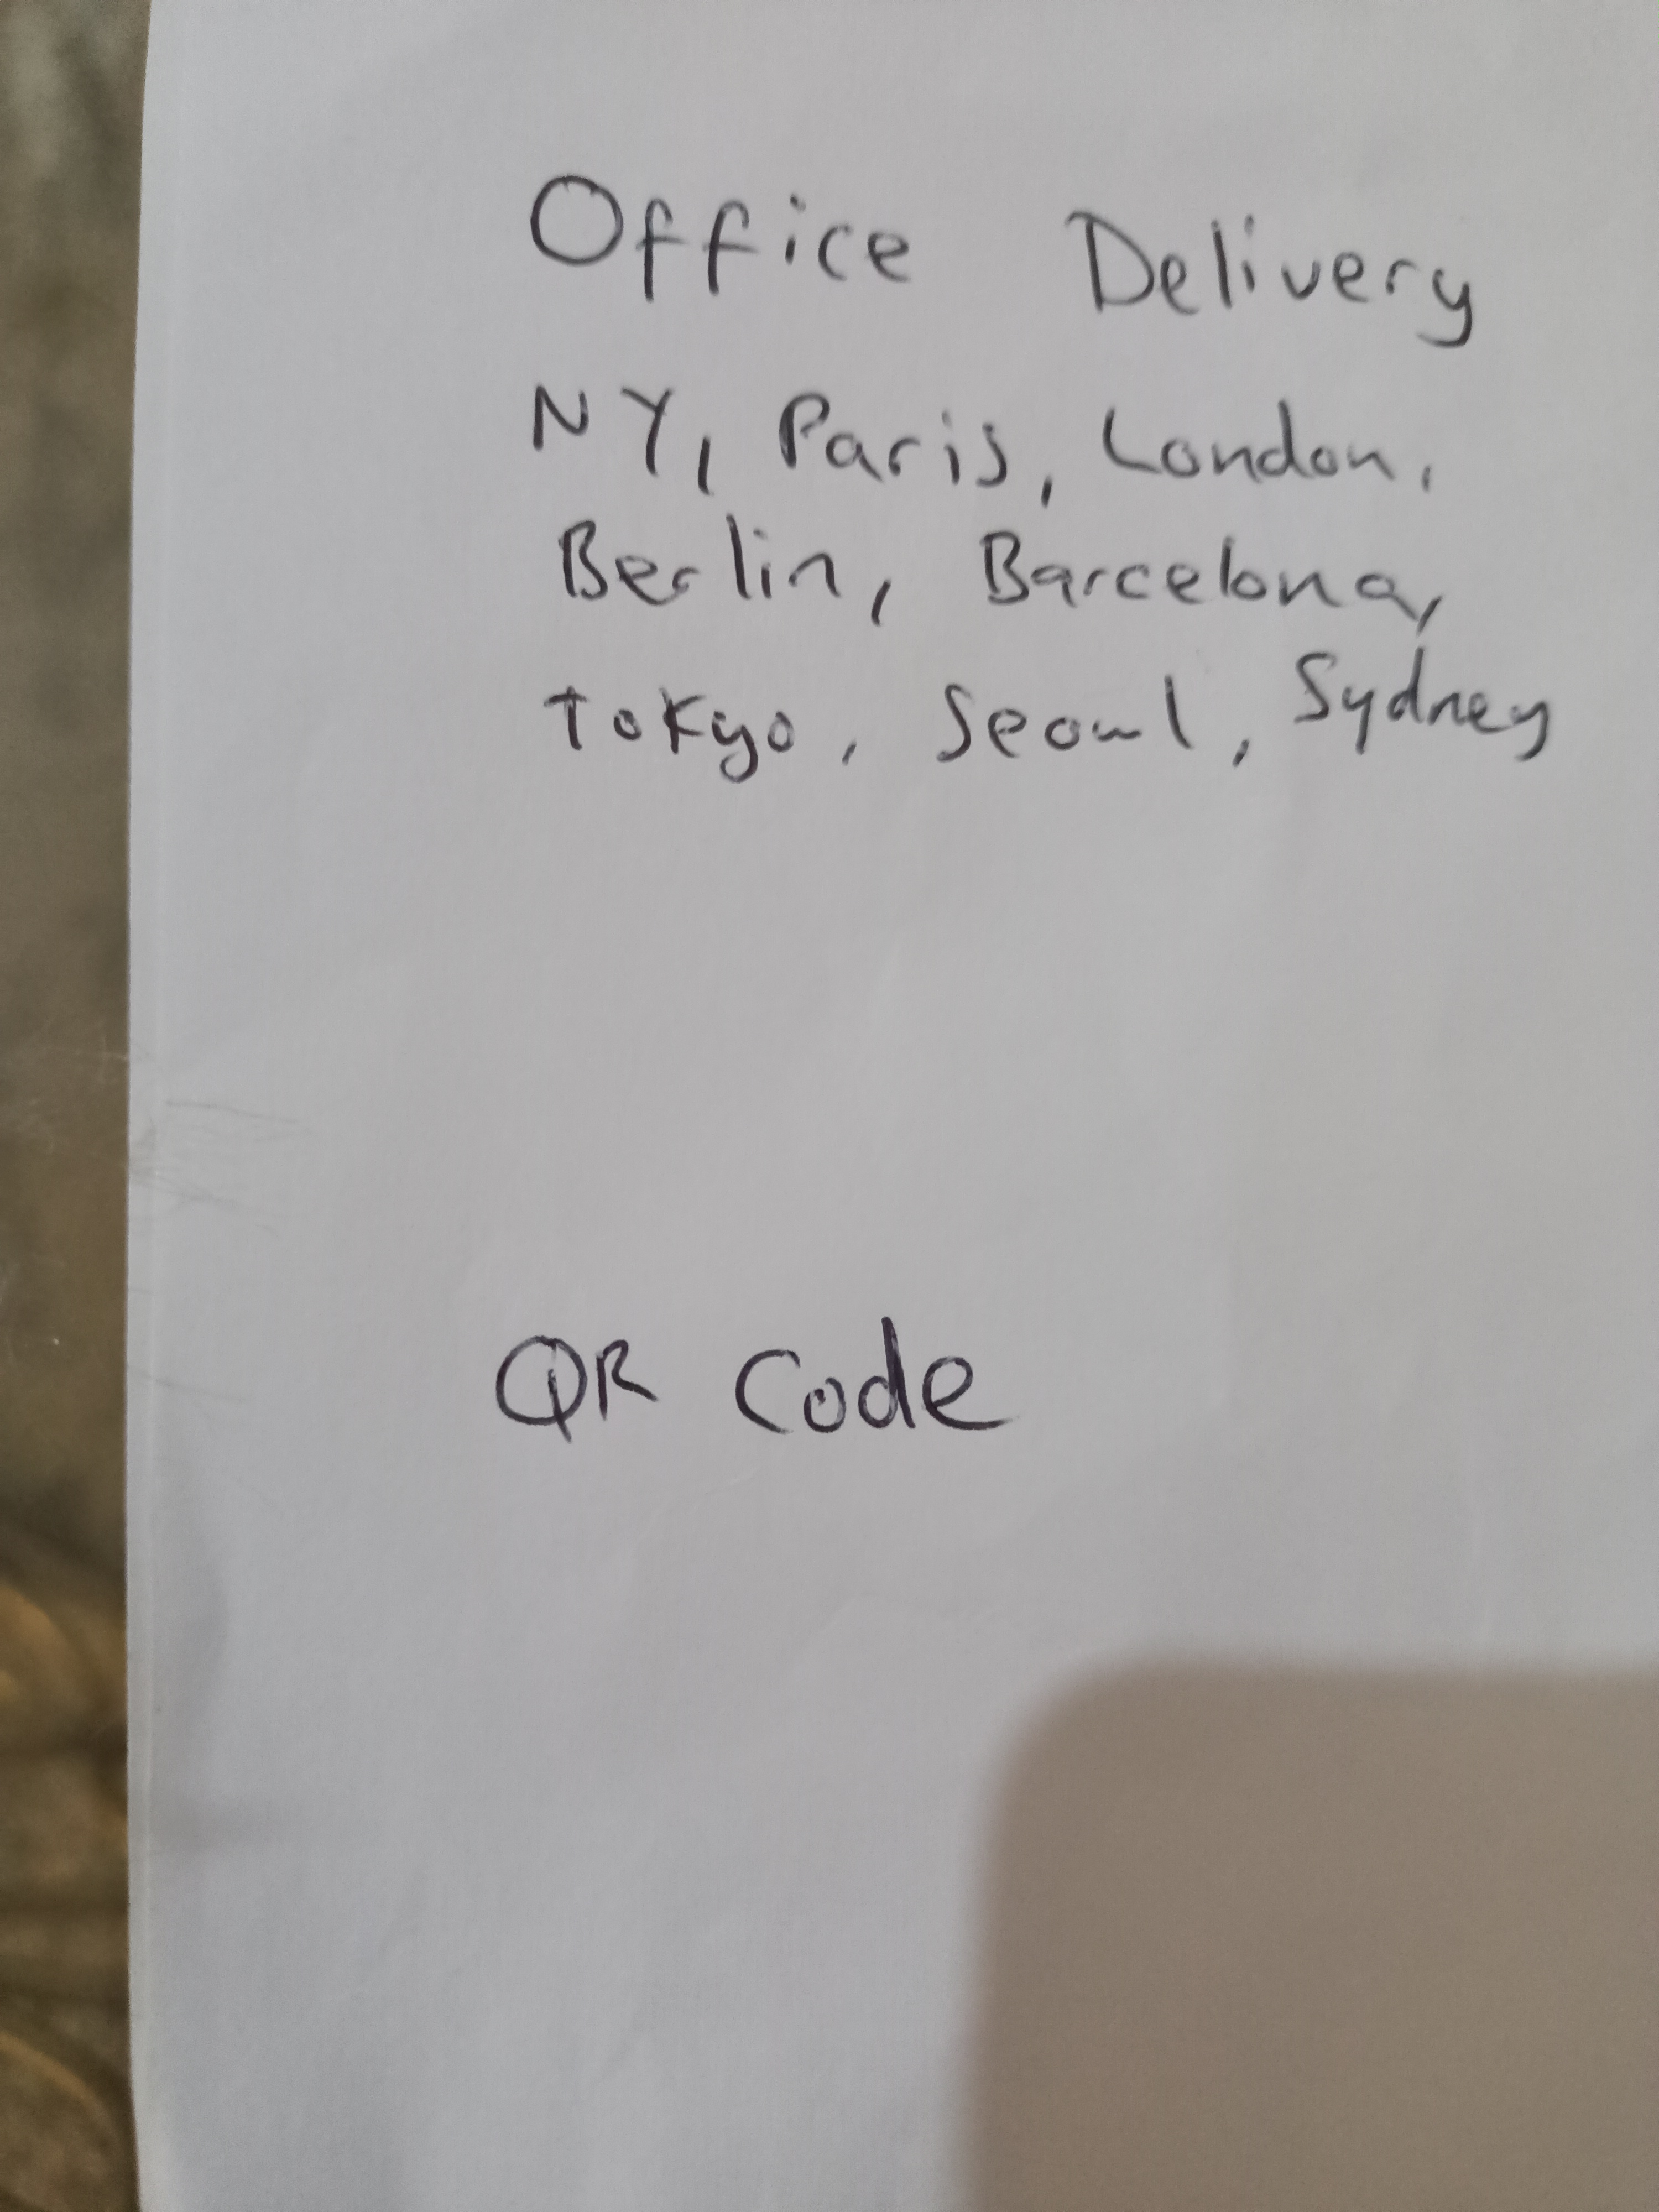 Office Delivery
NY, Paris, London,
Berlin, Barcelona,
Tokyo, Seoul, Sydney
QR Code